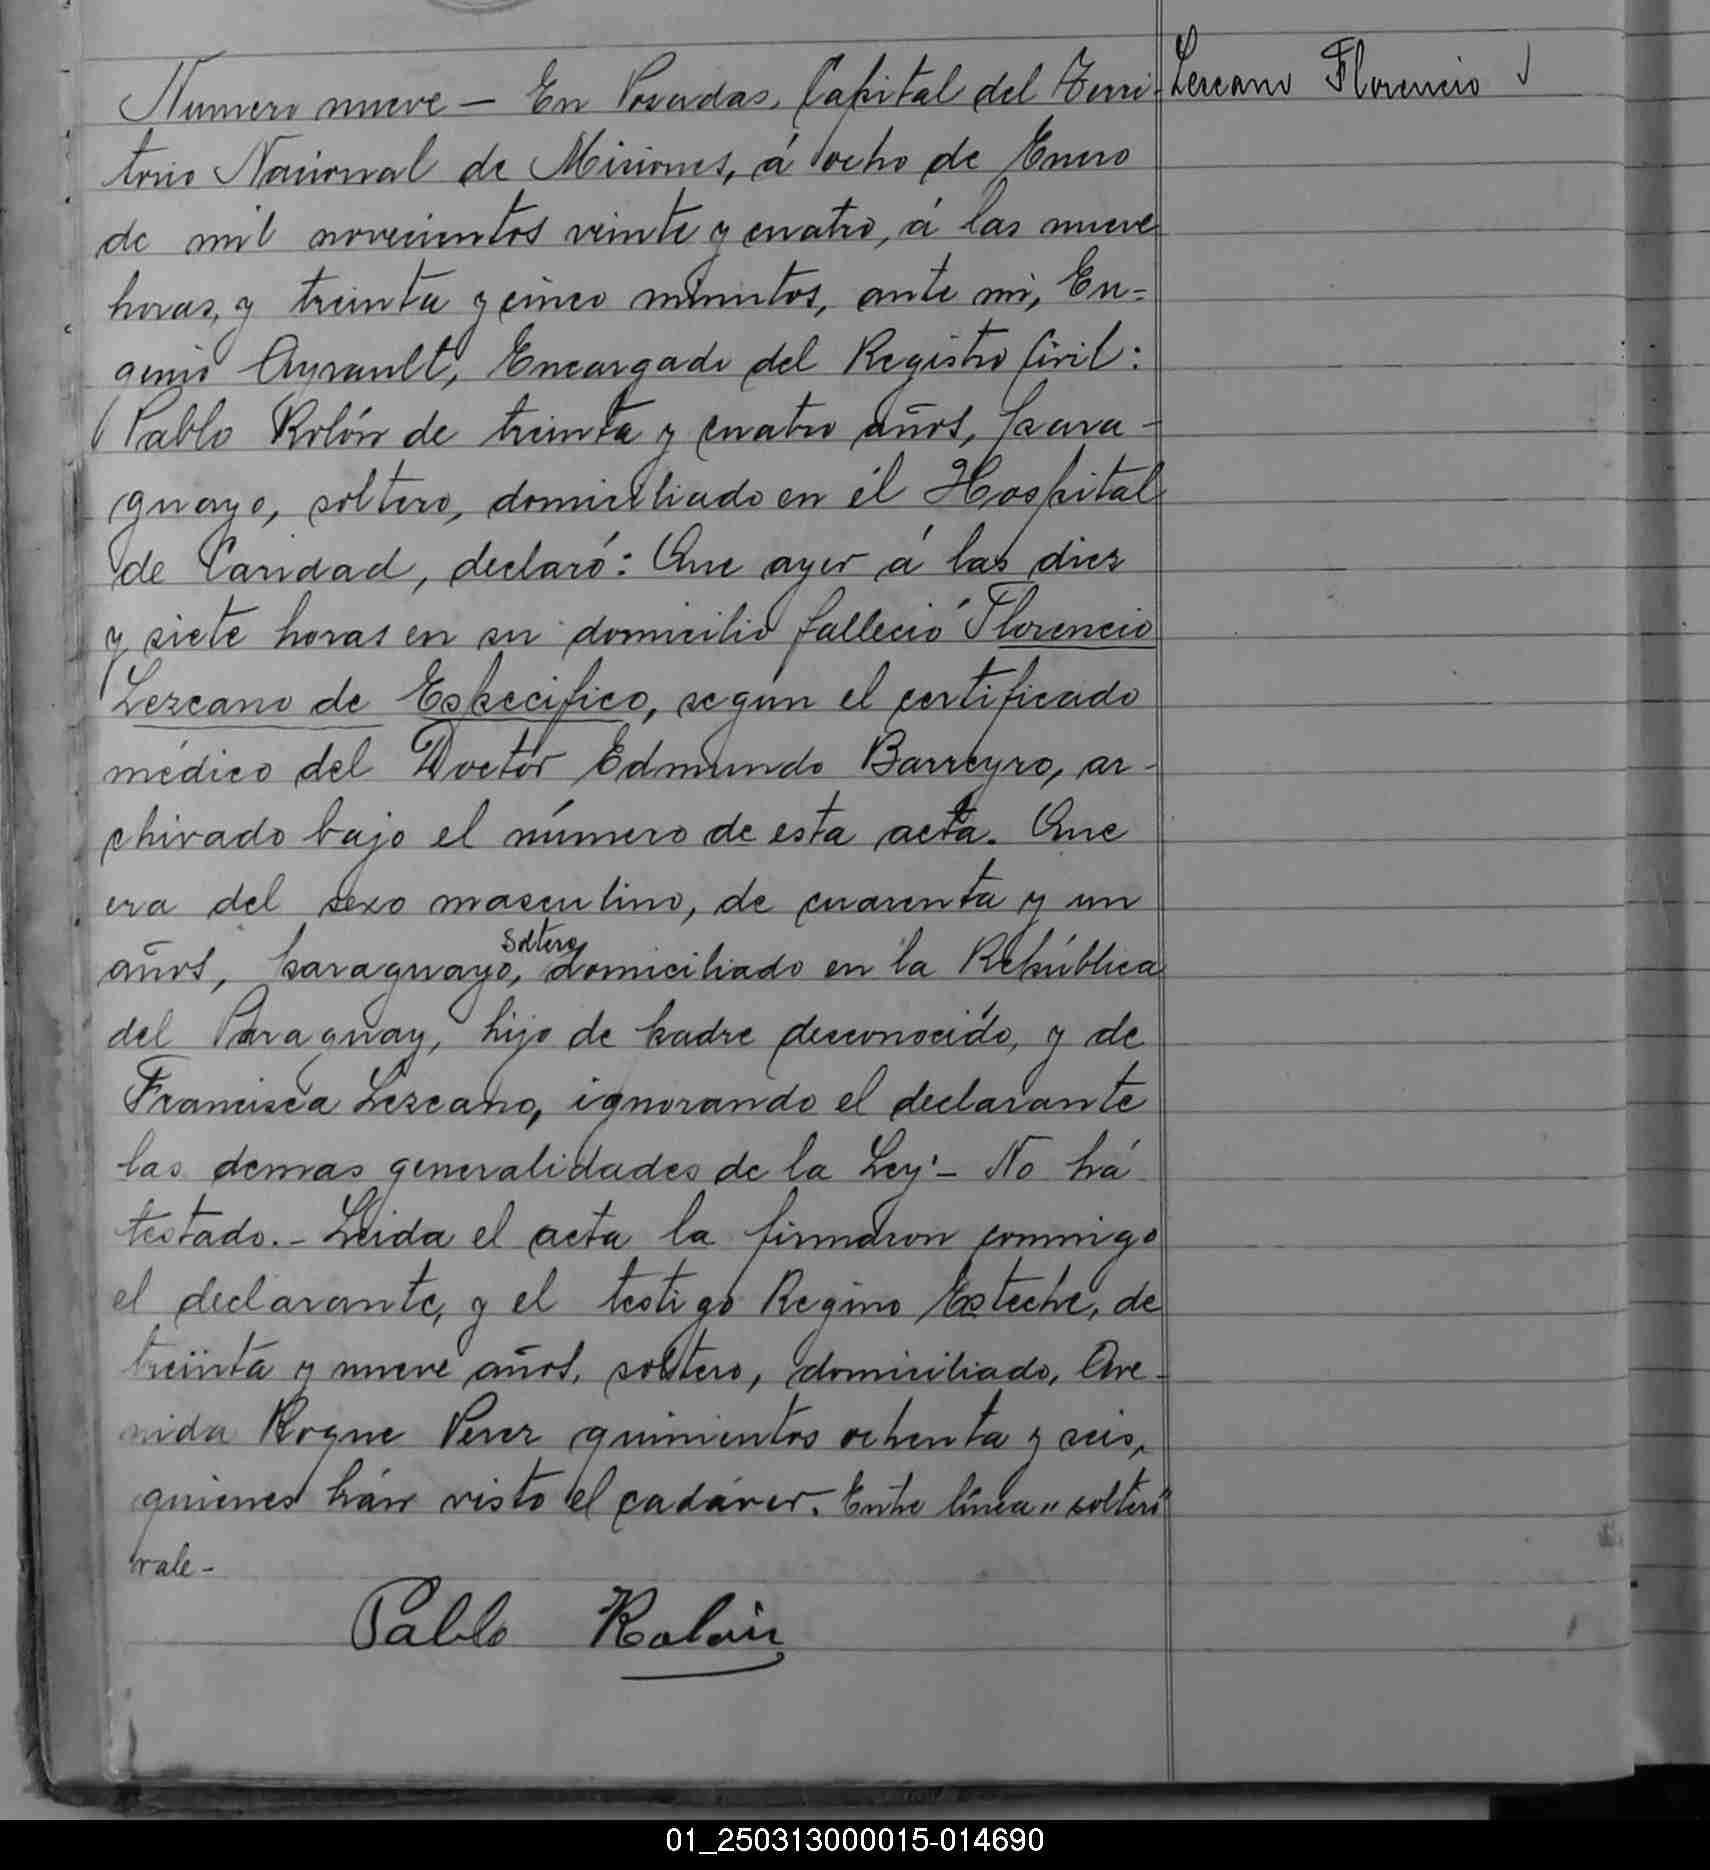 Numero nueve — En Posadas, Capital del Terri-
Lezcano Florencio
torio Nacional de Misiones, á ocho de Enero
de mil novecientos veinte y cuatro, á las nueve
horas, y treinta y cinco minutos, ante mi, Eu=
genio Ayrault, Encargado del Registro Civil:
Pablo Rolón de treinta y cuatro años, para-
guayo, soltero, domiciliado en él Hospital
de Caridad, declaró: Que ayer á las diez
y siete horas en su domicilio falleció Florencio
Lezcano de Especifico, según el certificado
médico del Doctor Edmundo Barreyro, ar-
chivado bajo el número de esta acta. Que
era del sexo masculino, de cuarenta y un
soltero
años, paraguayo, domiciliado en la República
del Paraguay, hijo de padre desconocido, y de
Francisca Lezcano, ignorando el declarante
las demas generalidades de la Ley.- No há
testado.- Leida el acta la firmaron conmigo
el declarante, y el testigo Regino Esteche, de
treinta y nueve años, soltero, domiciliado, Ave-
nida Roque Perez quinientos ochenta y seis,
quienes hán visto el cadáver. Entre línea "soltero"
vale-
Pablo Rolón
01_250313000015-014690